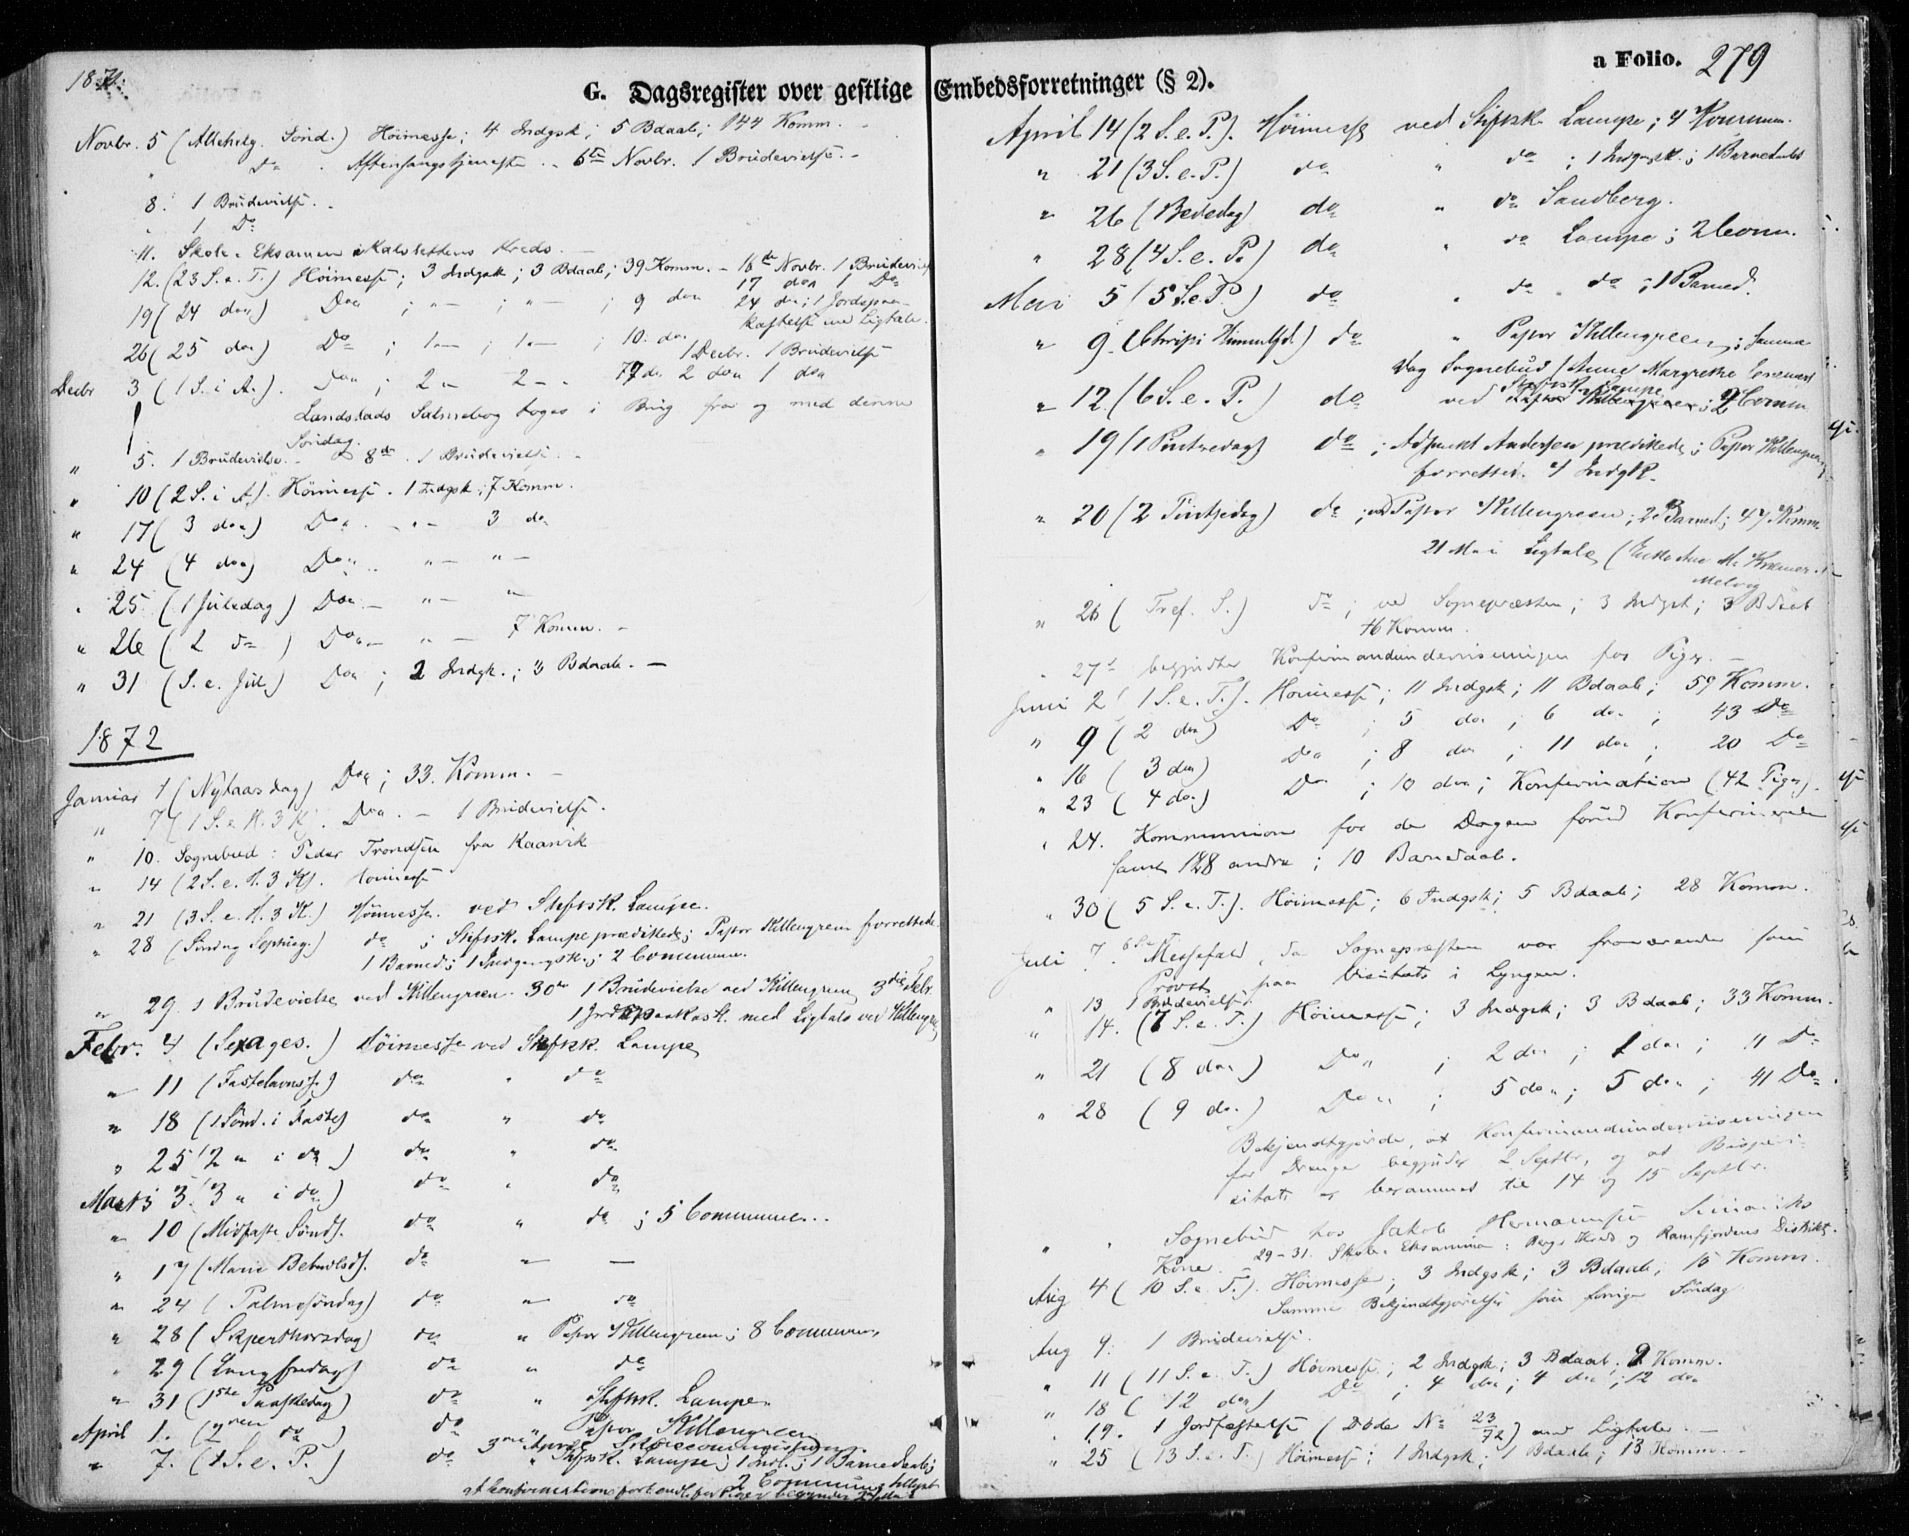 1871.
G. Dagsregister over gestlige Embedsforretninger (§ 2).
a Folio. 279
Novbr. 5 (Allehelg. Sönd.) Höimesse; 4 Indgsk; 5 Bdaab; 144 Komm. -
" Do . Aftensangstjeneste .. 6te Novbr. 1 Brudevielse. -
8. 1 Brudevielse. -
1 Do
11. Skole-Eksamen i Kreds. -
12. (23 S.e.T.) Höimesse; 3 Indgsk; 3 Bdaab; 39 Komm. - 16de Novbr. 1 Brudeviel
17 don 1 Do
19 (24 don) Don ; " - ; " - ; 9 don 24 do; 1 Jordspaa-
kastelse med Ligtale.
26 (25 don) Do ; 1 - ; 1 - ; 10. do
1 Decbr. 1 Brudevielse
Decbr 3 (1 S. i A.). Don ; 2 " 2 - . 77 do 2 don 1 don
Landstads Salmebog toges i Brug fra og med denne
Söndag.
" 5. 1 Brudevielse. - 8de . 1 Brudevielse. -
" 10 (2 S. i A.). Höimesse. 1 Indgsk; 7 Komm.
" 17 (3 don) Don . - " - 3 do
" 24 (4 don) Don .. " - " -
" 25 (1 Juledag) Don - " - "
" 26 (2 do) Don - " - 7 Komm. -
" 31 (S. e. Jul.) Don ; 2 Indgk.; 3 Bdaab. -
1872
Januar 1 (Nytaarsdag) Don ; 33. Komm. -
" 7 (1 S. e. H. 3 K). Don . - 1 Brudevielse.
" 10. Sognebud : Peder Trondsen fra Kaarvik
" 14 (2 S. e. H. 3 K). Höimesse
" 21 (3 S. e. H. 3 K.) Höimesse. ved Stiftsk. Lampe.
" 28 (Söndag Septuag.) do ; Stiftsk. Lampe prædikede; Pastor Killengreen forrettede
1 Barned; 1 Indgangsk.; 2 Commun.
" 29. 1 Brudevielse ved Killengreen. 30te 1 Brudevielse ved Killengreen 3die Febr.
1 Jordspaakast. med Ligtale ved Killengreen
Febr. 4 (Sexages.) Höimesse ved Stiftsk. Lampe
" 11 (Fastelavnss.) do " do
" 18 (1 Sönd. i Faste) do " do
" 25 (2 " i do) do " do
Marts 3. (3 " i do) do " do
" 10 (Midfaste Sönd). do " do ; 5 Communic..
" 17 (Marie Bebudelsd). do " -
" 24 (Palmesöndag) do " do
" 28 (Skjærthorsdag) do " Pastor Killengreen; 8 Commun.
" 29 (Langfredag) do " do
" 31 (1ste Paaskedag) do " Stiftsk. Lampe.
April 1. (2den do) do " Pastor Killengreen
3die April Skolecommission.
" 7. (1 S. e. P.) do " Stiftsk. Lampe; 1 Indl.; 1 Barnedaab;
2 Commun. tillyst
at konfirmationsforb. for Piger begynder
April 14 (2 S. e. P.). Höimesse ved Stiftsk. Lampe; 4 Kommun.
" 21 (3 S. e. P.) do " do ; 1 Indgsk.; 1 Barnedaab
" 26 (Bededag) do " do Sandberg.
" 28 (4 S. e. P.) do " do Lampe; 2 Comm.
Mai 5 (5 S. e. P.) do " do do ; 1 Barned.
" 9. (Christi Himmelfd.) do " Pastor Killengreen; samme
Dag Sognebud (Anne Margrethe
" 12. (6 S. e. P.) do ved Stiftsk. Lampe ; 2 Comm
" 19 (1 Pintsedag) do ; Adjunkt Andersen prædikede; Pastor Killengreen
forrettede. 4 Indgk.
" 20 (2 Pintsedag) do ; ved Pastor Killengreen; 2 Barned; 47 Komm
21 Mai Ligtale (Enke M. Kræmer
" 26 (Tref. S.) do ; ved Sognepræsten; 3 Indgsk; 3 Bdaab
16 Komm.
" 27de begyndte Konfirmandundervisningen for Piger. -
Juni 2 (1 S. e. T.). Höimesse; 11 Indgsk; 11 Bdaab; 59 Komm.
" 9 (2 don) Do ; 5 don ; 6 don ; 43 Do
" 16 (3 don) Don ; 8 don ; 11 don ; 20 Do
" 23 (4 don) Don ; 10 don; Konfirmation (42 Piger).
" 24. Kommunion for de Dagen forud Konfirmerede
samt 128 andre ; 10 Barnedaab.
" 30 (5 S. e. T.). Höimesse; 6 Indgsk; 5 Bdaab; 28 Komm.
Juli 7. 6 S.e.T. Messefald, da Sognepræsten var fraværende som
Provst paa Visitats i Lyngen.
" 13 1 Brudevielse.
" 14. (7 S. e. T.) Höimesse; 3 Indgsk; 3 Bdaab; 33 Komm.
" 21 (8 don) Don ; 2 don ; 1 don ; 11 Do
" 28 (9 don) Don ; 5 don ; 5 don ; 41 Do.
Bekjendtgjorde, at Konfirmandundervisningen
for Drenge begynder 2 Septbr, og at Bispevi-
sitats er berammet til 14 og 15 Septbr.
" " Sognebud hos Jakob Hermansen
Kone. - 29-31. Skole-Eksamina i Bergs Kreds og Ramfjordens Distrikt.
Aug 4. (10 S. e. T.). Höimesse; 3 Indgsk; 3 Bdaab; 15 Komm.
Samme Bekjendtgjörelse som forrige Söndag
Aug 9. 1 Brudevielse.
" 11 (11 S. e. T.) Höimesse; 2 Indgsk; 3 Bdaab; 2 Komm.
" 18 (12 don) Do ; 4 don ; 4 don ; 12 don
" 19. 1 Jordfæstelse (Döde No 23/72) med Ligtale. -
" 25 (13 S. e. T.) Höimesse; 1 Indgsk; 1 Bdaab; 13 Komm. -